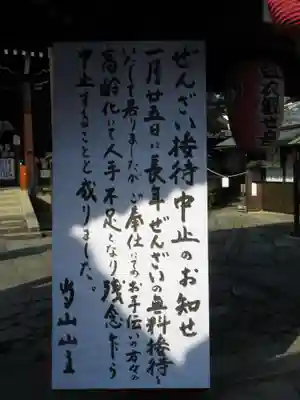 ぜんざい接待中止のお知せ
一月廿五日に長年ぜんざいの無料接待を
いたして参りましたが、ご奉仕にてのお手伝いの方々の
高齢化にて人手不足となり残念乍ら
中止することと成りました。
当山山主